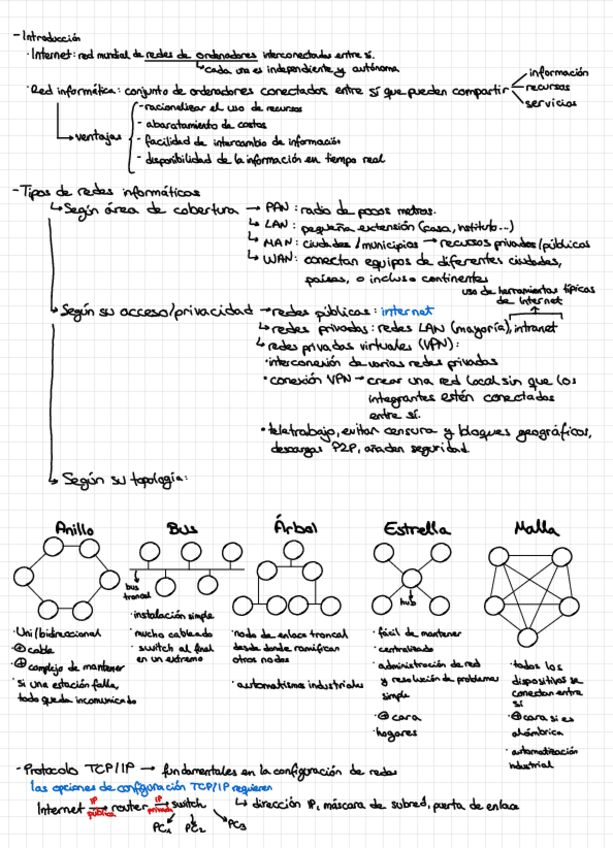 - Introducción
· Internet: red mundial de redes de ordenadores interconectadas entre sí.
cada una es independiente y autónoma
· Red informática: conjunto de ordenadores conectados entre sí que pueden compartir
información
recursos
servicios
ventajas
- racionalizar el uso de recursos
- abaratamiento de costos
- facilidad de intercambio de información
- disponibilidad de la información en tiempo real
- Tipos de redes informáticas
Según área de cobertura → PAN: radio de pocos metros.
LAN: pequeña extensión (casa, instituto...)
MAN: ciudades/municipios → recursos privados/públicos
WAN: conectan equipos de diferentes ciudades,
países, o incluso continentes
uso de herramientas típicas
de Internet
Según su acceso/privacidad → redes públicas: internet
redes privadas: redes LAN (mayoría), intranet
redes privadas virtuales (VPN):
· interconexión de varias redes privadas
· conexión VPN → crear una red local sin que los
integrantes estén conectados
entre sí.
· teletrabajo, evitan censura y bloqueos geográficos,
descargas P2P, añaden seguridad.
Según su topología:
Anillo
Bus
Árbol
Estrella
Malla
bus
troncal
hub
· Uni/bidireccional
⊕ cable
⊕ complejo de mantener
· si una estación falla,
todo queda incomunicado
· instalación simple
· mucho cableado
· switch al final
en un extremo
· nodo de enlace troncal
desde donde ramifican
otros nodos
· automatismos industriales
· fácil de mantener
· centralizado
· administración de red
y resolución de problemas
simple
· ⊕ cara
· hogares
· todos los
dispositivos se
conectan entre
sí
· ⊕ cara si es
alámbrica
· automatización
industrial
- Protocolo TCP/IP → fundamentales en la configuración de redes
las opciones de configuración TCP/IP requieren
dirección IP, máscara de subred, puerta de enlace
Internet → router → switch
IP
pública
IP
privada
PC1 PC2 PC3